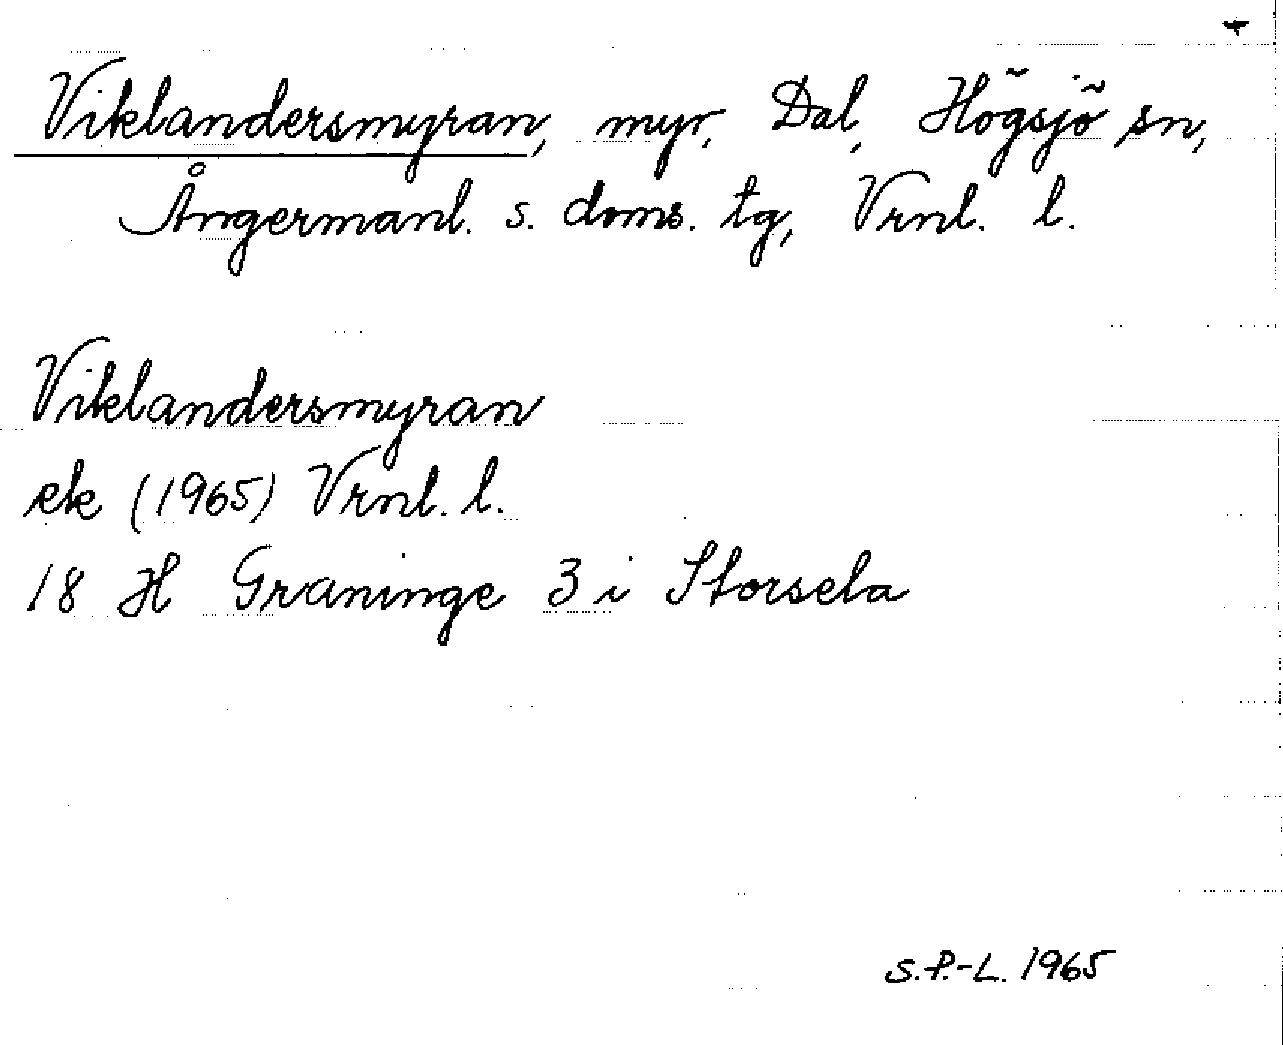 Viklandersmyran, myr, Dal, Högsjö sn,
Ångermanl. s. doms. tg, Vrnl. l.
Viklandersmyran
ek (1965) Vrnl. l.
18 H Graninge 3 i Storsela
S.P.-L. 1965